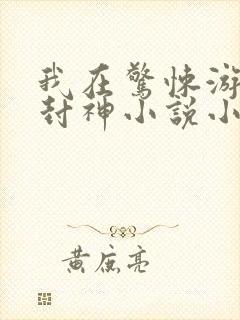 我在驚悚游
封神小說小
黃庶亮